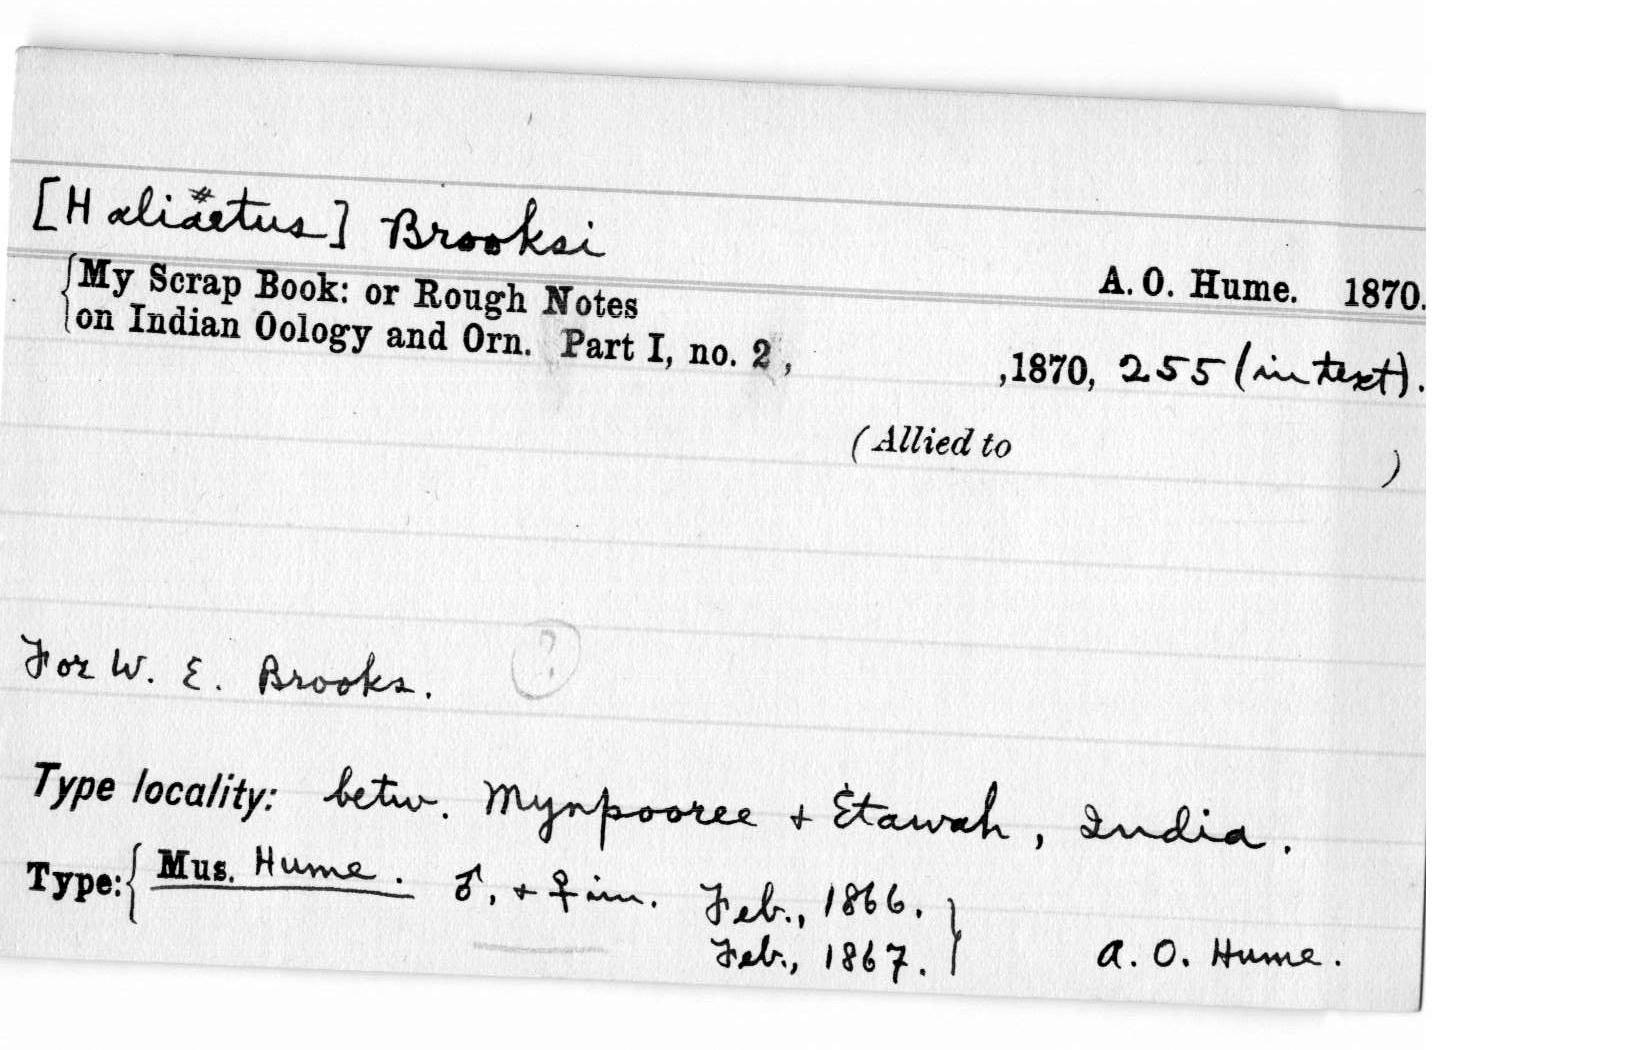 [Haliäetus] Brooksi
A. O. Hume. 1870.
My Scrap Book: or Rough Notes
on Indian Oology and Orn. Part I, no. 2, ,1870, 255 (in text).
(Allied to )
For W. E. Brooks. ?
Type locality: betw. Mynpooree + Etawah, India.
Type: Mus. Hume. ♂, + ♀ im. Feb., 1866.
Feb., 1867. A. O. Hume.